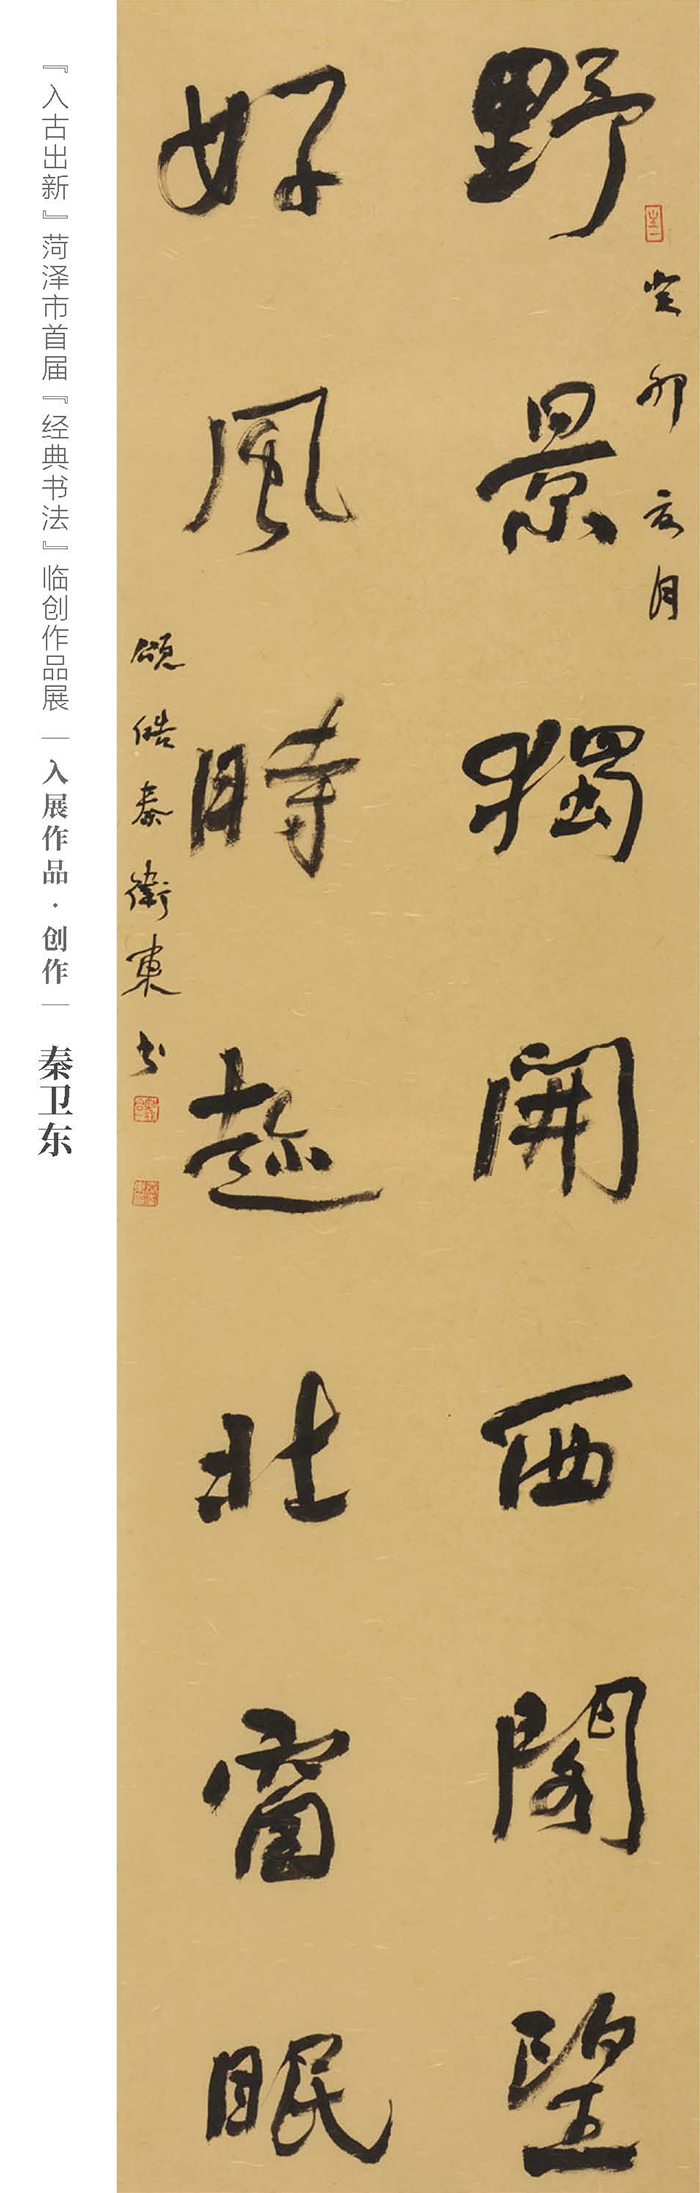 野景獨開西閣望
好風時趁北窗眠
癸卯亥月
頌皓秦衛東书
『入古出新』菏泽市首届『经典书法』临创作品展｜入展作品·创作｜秦卫东